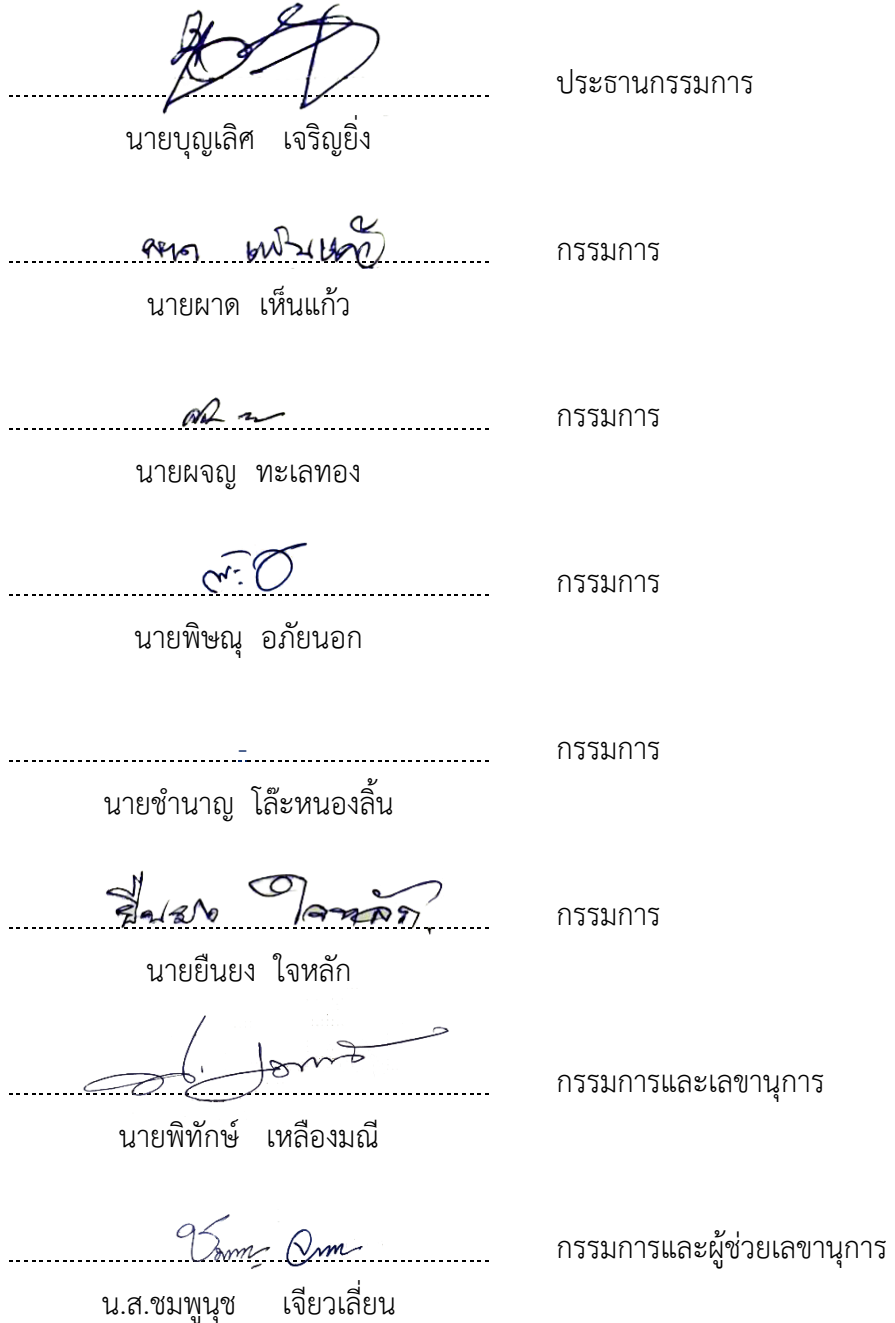 ประธานกรรมการ
นายบุญเลิศ เจริญยิ่ง
ผาด เห็นแก้ว กรรมการ
นายผาด เห็นแก้ว
กรรมการ
นายผจญ ทะเลทอง
กรรมการ
นายพิษณุ อภัยนอก
- กรรมการ
นายชำนาญ โล๊ะหนองลิ้น
ยืนยง ใจหลัก กรรมการ
นายยืนยง ใจหลัก
กรรมการและเลขานุการ
นายพิทักษ์ เหลืองมณี
กรรมการและผู้ช่วยเลขานุการ
น.ส.ชมพูนุช เจียวเลี่ยน